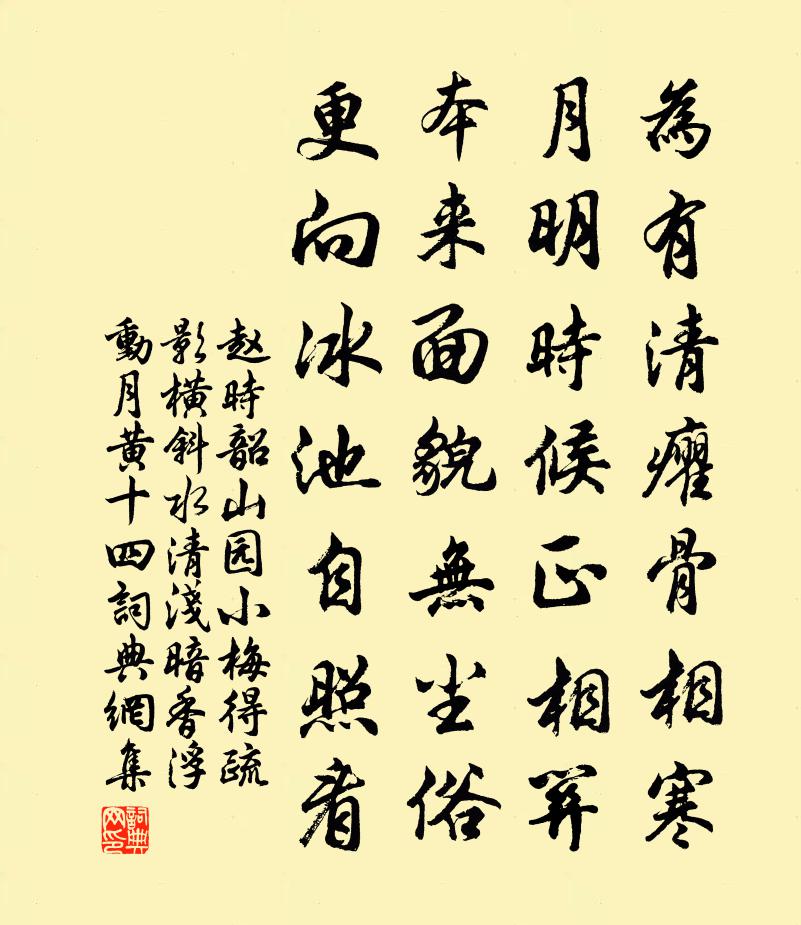 為有清癯骨相寒
月明時候正相
本来面貌無尘俗
更向冰池自照看
赵時韶山园小梅得疏
影橫斜水清淺暗香浮
動月黄十四詞典網集
詞典网印